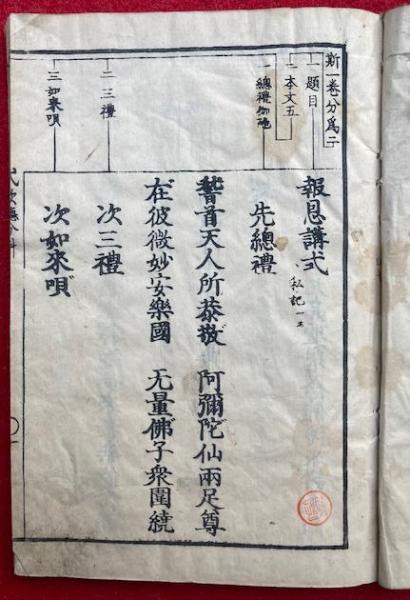 斯一卷分爲二
一題目
二本文五
一總禮伽陀
二三禮
三如來唄
報恩講式
私記一
先總禮
稽首天人所恭敬 阿彌陀仙兩足尊
在彼微妙安樂國 无量佛子衆圍繞
次三禮
次如來唄